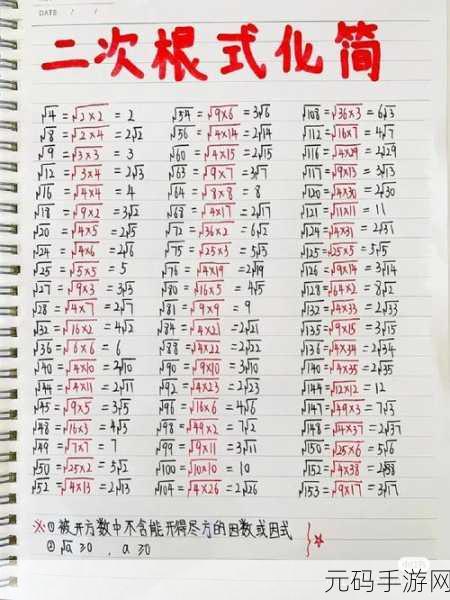 DATE / /
二次根式化简
√4 = √2×2 = 2
√8 = √2×4 = 2√2
√9 = √3×3 = 3
√12 = √3×4 = 2√3
√16 = √4×4 = 4
√18 = √9×2 = 3√2
√20 = √4×5 = 2√5
√24 = √4×6 = 2√6
√25 = √5×5 = 5
√27 = √9×3 = 3√3
√28 = √4×7 = 2√7
√32 = √16×2 = 4√2
√36 = √6×6 = 6
√40 = √4×10 = 2√10
√44 = √4×11 = 2√11
√45 = √9×5 = 3√5
√48 = √16×3 = 4√3
√49 = √7×7 = 7
√50 = √25×2 = 5√2
√52 = √4×13 = 2√13
√54 = √9×6 = 3√6
√56 = √4×14 = 2√14
√60 = √4×15 = 2√15
√63 = √9×7 = 3√7
√64 = √8×8 = 8
√68 = √4×17 = 2√17
√72 = √36×2 = 6√2
√75 = √25×3 = 5√3
√76 = √4×19 = 2√19
√80 = √16×5 = 4√5
√81 = √9×9 = 9
√84 = √4×21 = 2√21
√88 = √4×22 = 2√22
√90 = √9×10 = 3√10
√92 = √4×23 = 2√23
√96 = √16×6 = 4√6
√98 = √49×2 = 7√2
√99 = √9×11 = 3√11
√100 = √10×10 = 10
√104 = √4×26 = 2√26
√108 = √36×3 = 6√3
√112 = √16×7 = 4√7
√116 = √4×29 = 2√29
√117 = √9×13 = 3√13
√120 = √4×30 = 2√30
√121 = √11×11 = 11
√124 = √4×31 = 2√31
√125 = √25×5 = 5√5
√126 = √9×14 = 3√14
√128 = √64×2 = 8√2
√132 = √4×33 = 2√33
√135 = √9×15 = 3√15
√136 = √4×34 = 2√34
√140 = √4×35 = 2√35
√144 = √12×12 = 12
√147 = √49×3 = 7√3
√148 = √4×37 = 2√37
√150 = √25×6 = 5√6
√152 = √4×38 = 2√38
√153 = √9×17 = 3√17
※①被开方数中不含能开得尽方的因数或因式
②√a≥0，a≥0
元码手游网